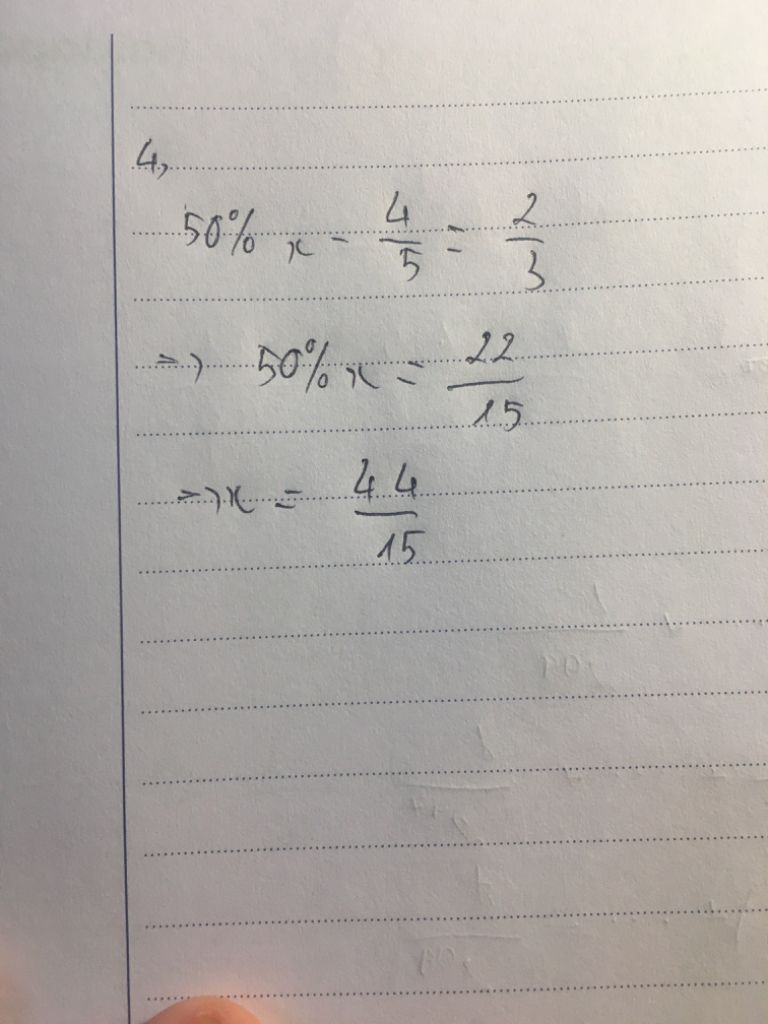 4,
50% x - 4/5 = 2/3
=> 50% x = 22/15
=> x = 44/15